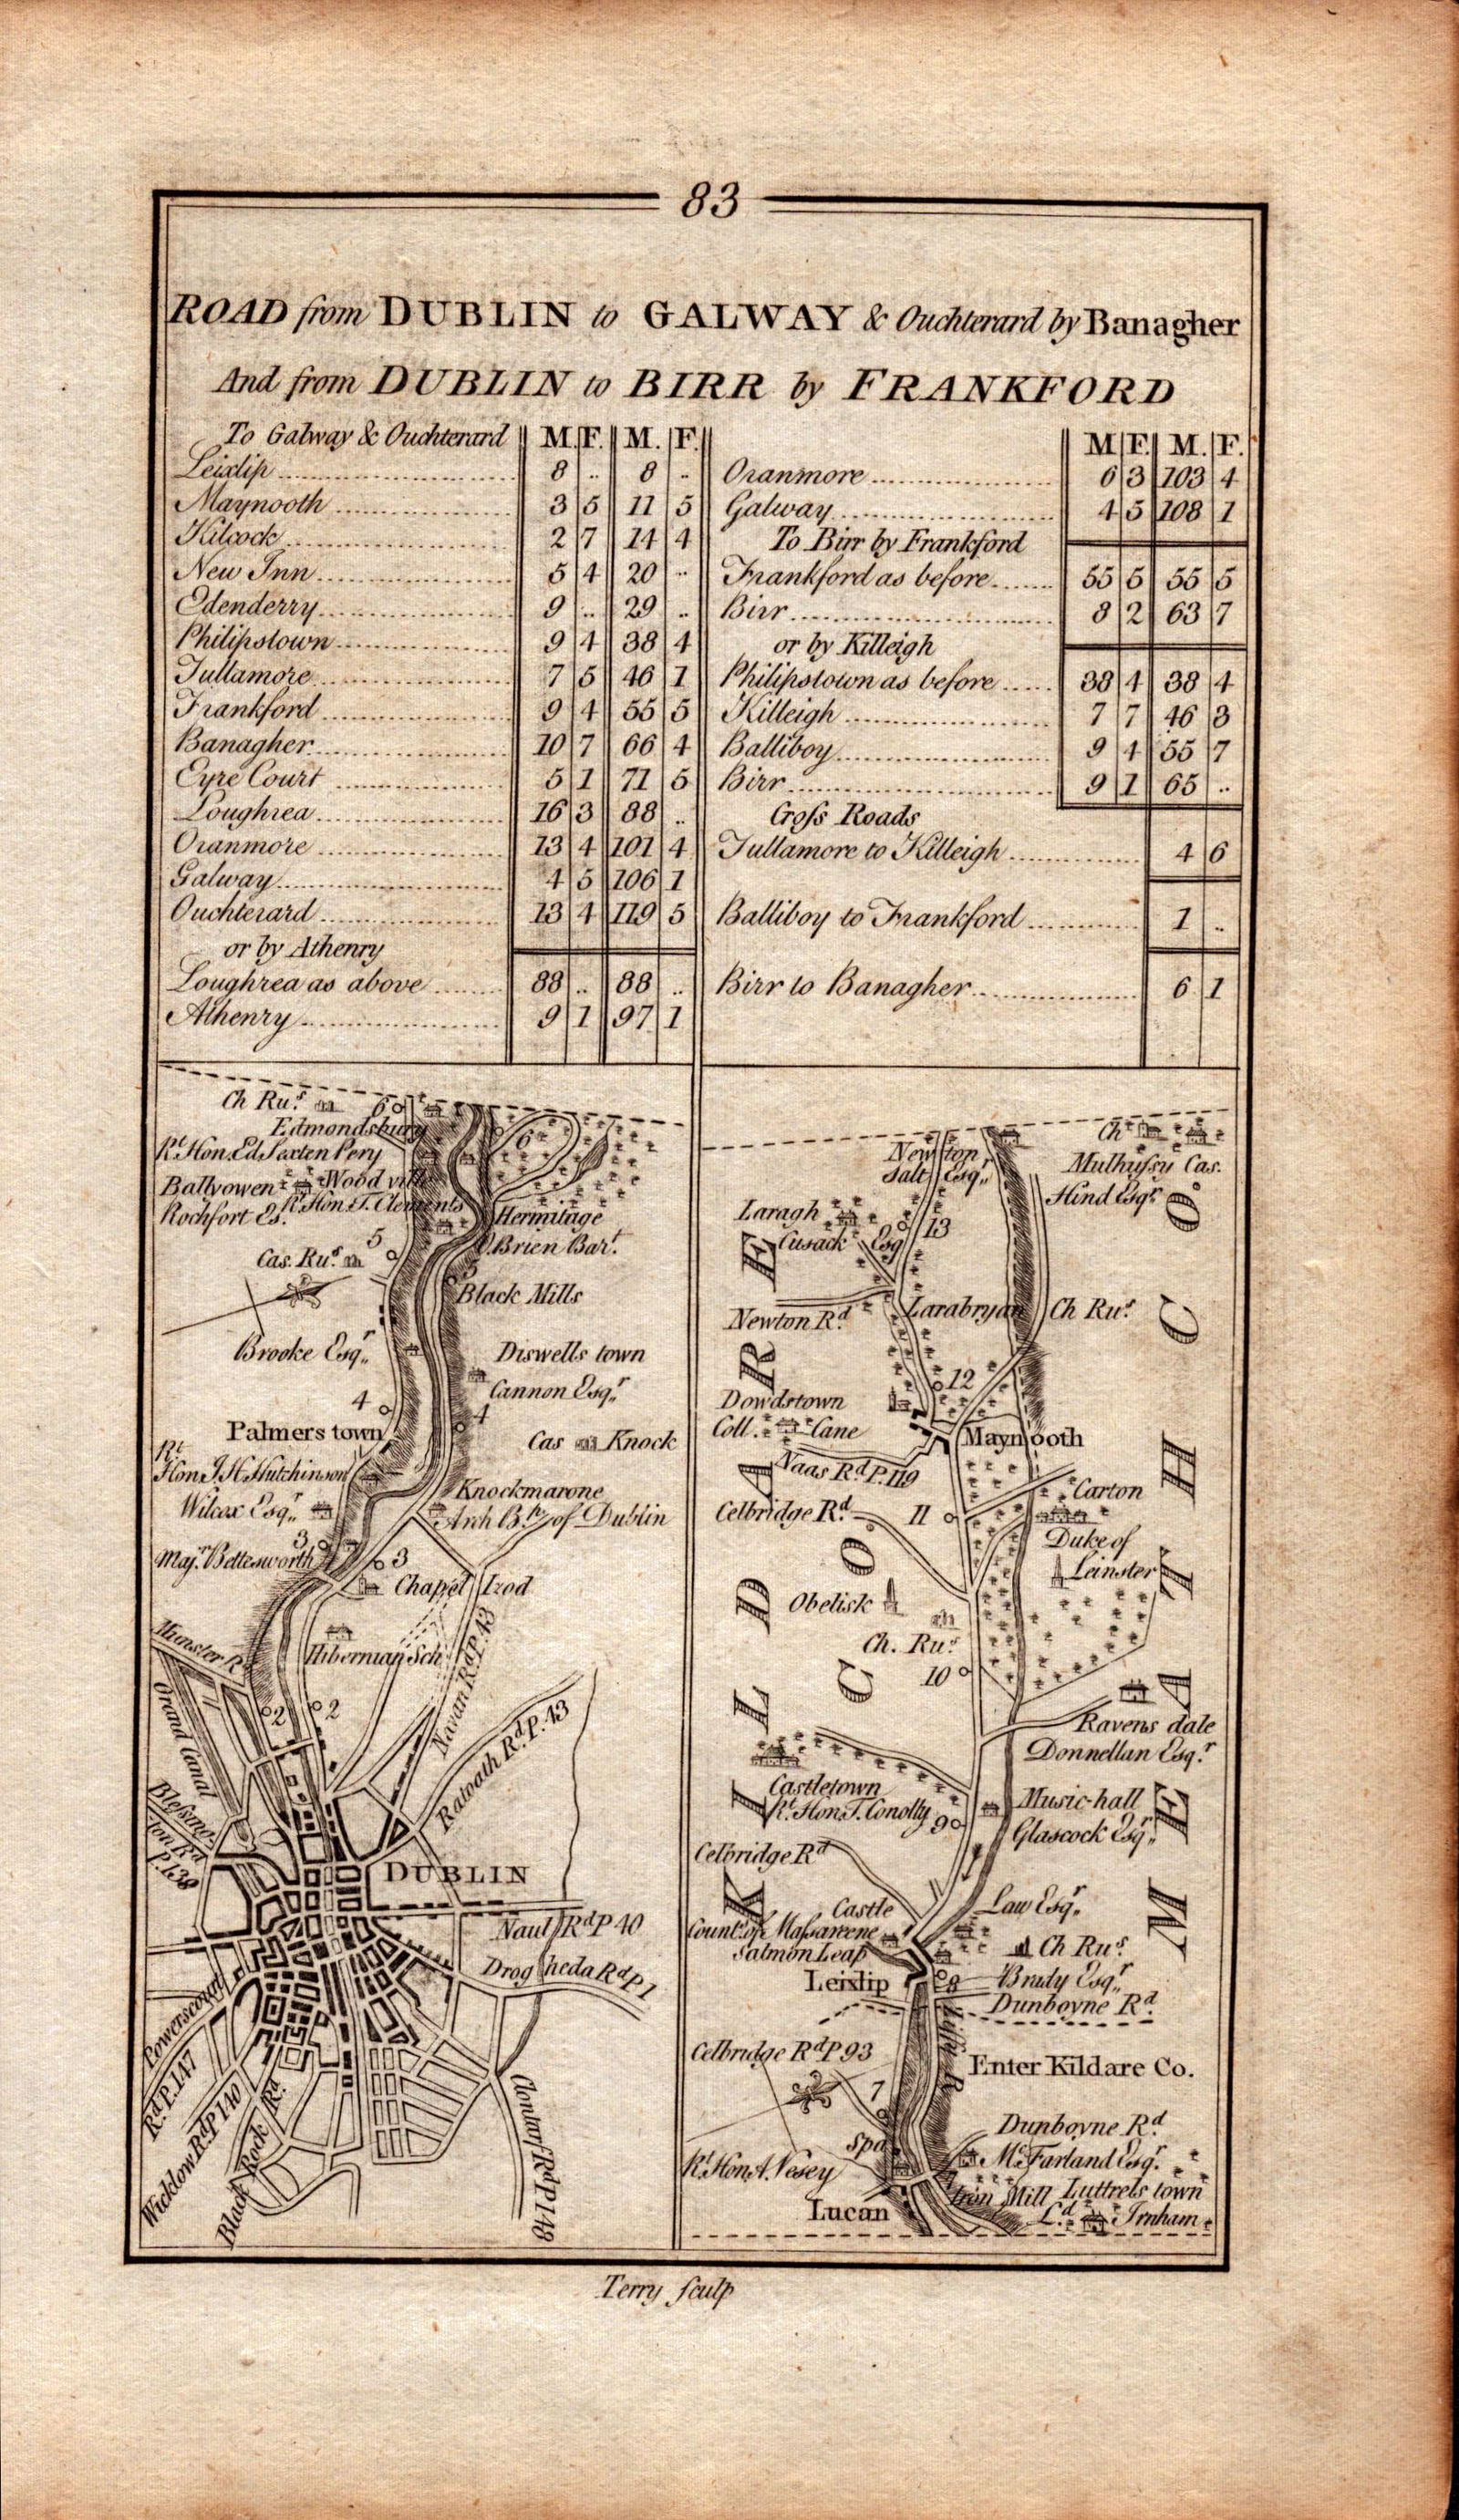 83
ROAD from DUBLIN to GALWAY & Ouchterard by Banagher
And from DUBLIN to BIRR by FRANKFORD
To Galway & Ouchterard M. F. M. F.
Leixlip 8 .. 8 ..
Maynooth 3 5 11 5
Kilcock 2 7 14 4
New Inn 5 4 20 ..
Edenderry 9 .. 29 ..
Philipstown 9 4 38 4
Tullamore 7 5 46 1
Frankford 9 4 55 5
Banagher 10 7 66 4
Eyre Court 5 1 71 5
Loughrea 16 3 88 ..
Oranmore 13 4 101 4
Galway 4 5 106 1
Ouchterard 13 4 119 5
or by Athenry
Loughrea as above 88 .. 88 ..
Athenry 9 1 97 1
M F. M. F.
Oranmore 6 3 103 4
Galway 4 5 108 1
To Birr by Frankford
Frankford as before 55 5 55 5
Birr 8 2 63 7
or by Killeigh
Philipstown as before 38 4 38 4
Killeigh 7 7 46 3
Balliboy 9 4 55 7
Birr 9 1 65 ..
Croſs Roads
Tullamore to Killeigh 4 6
Balliboy to Frankford 1 ..
Birr to Banagher 6 1
Ch Ru.s 6
Edmondsbury
Rt Hon. Ed Sexten Pery
6
Ballyowen
Wood ville
Rt Hon. T. Clements
Rochfort Es.
Hermitage
O Brien Bart.
5
Cas. Ru.s
5
Black Mills
Brooke Esqr.
Diswells town
Cannon Esqr.
4
4
Palmers town
Cas Knock
Rt
Hon J H Hutchinson
Knockmarone
Wilcox Esqr.
Arch Bp. of Dublin
3
Majr. Bettesworth
3
Chapel Izod
Munster R
Hibernian Sch
Navan Rd. P. 43
Grand Canal
2
2
Ratoath Rd. P. 43
Bleſsing-
ton Rd
P. 138
DUBLIN
Naul Rd P 40
Drogheda Rd P 1
Powerscourt
Rd. P. 147
Wicklow Rd P 140
Black Rock Rd.
Clontarf Rd P 148
Newton
Salt Esqr.
Ch
Mulhuſsy Cas.
Hind Esqr.
Laragh
Cusack Esq
13
Newton Rd.
Larabryan
Ch Ru.s
12
Dowdstown
Coll. Cane
Maynooth
Naas Rd. P. 119
Carton
Celbridge Rd.
11
Duke of
Leinster
Obelisk
Ch. Ru.s
10
Ravens dale
Donnellan Esqr.
Castletown
Rt. Hon. T. Conolly
9
Music-hall
Glascock Esqr.
Celbridge Rd
Castle
Count. of Maſsareene
Salmon Leap
Law Esqr.
Ch Ru.s
Leixlip
8
Brady Esqr.
Dunboyne Rd.
Liffy R
Celbridge Rd P 93
Enter Kildare Co.
7
Dunboyne Rd
Spa
Mc.Farland Esqr.
Rt. Hon A. Vesey
Iron Mill
Luttrels town
Lucan
Ld. Irnham
KILDARE CO.
MEATH CO.
Terry sculp